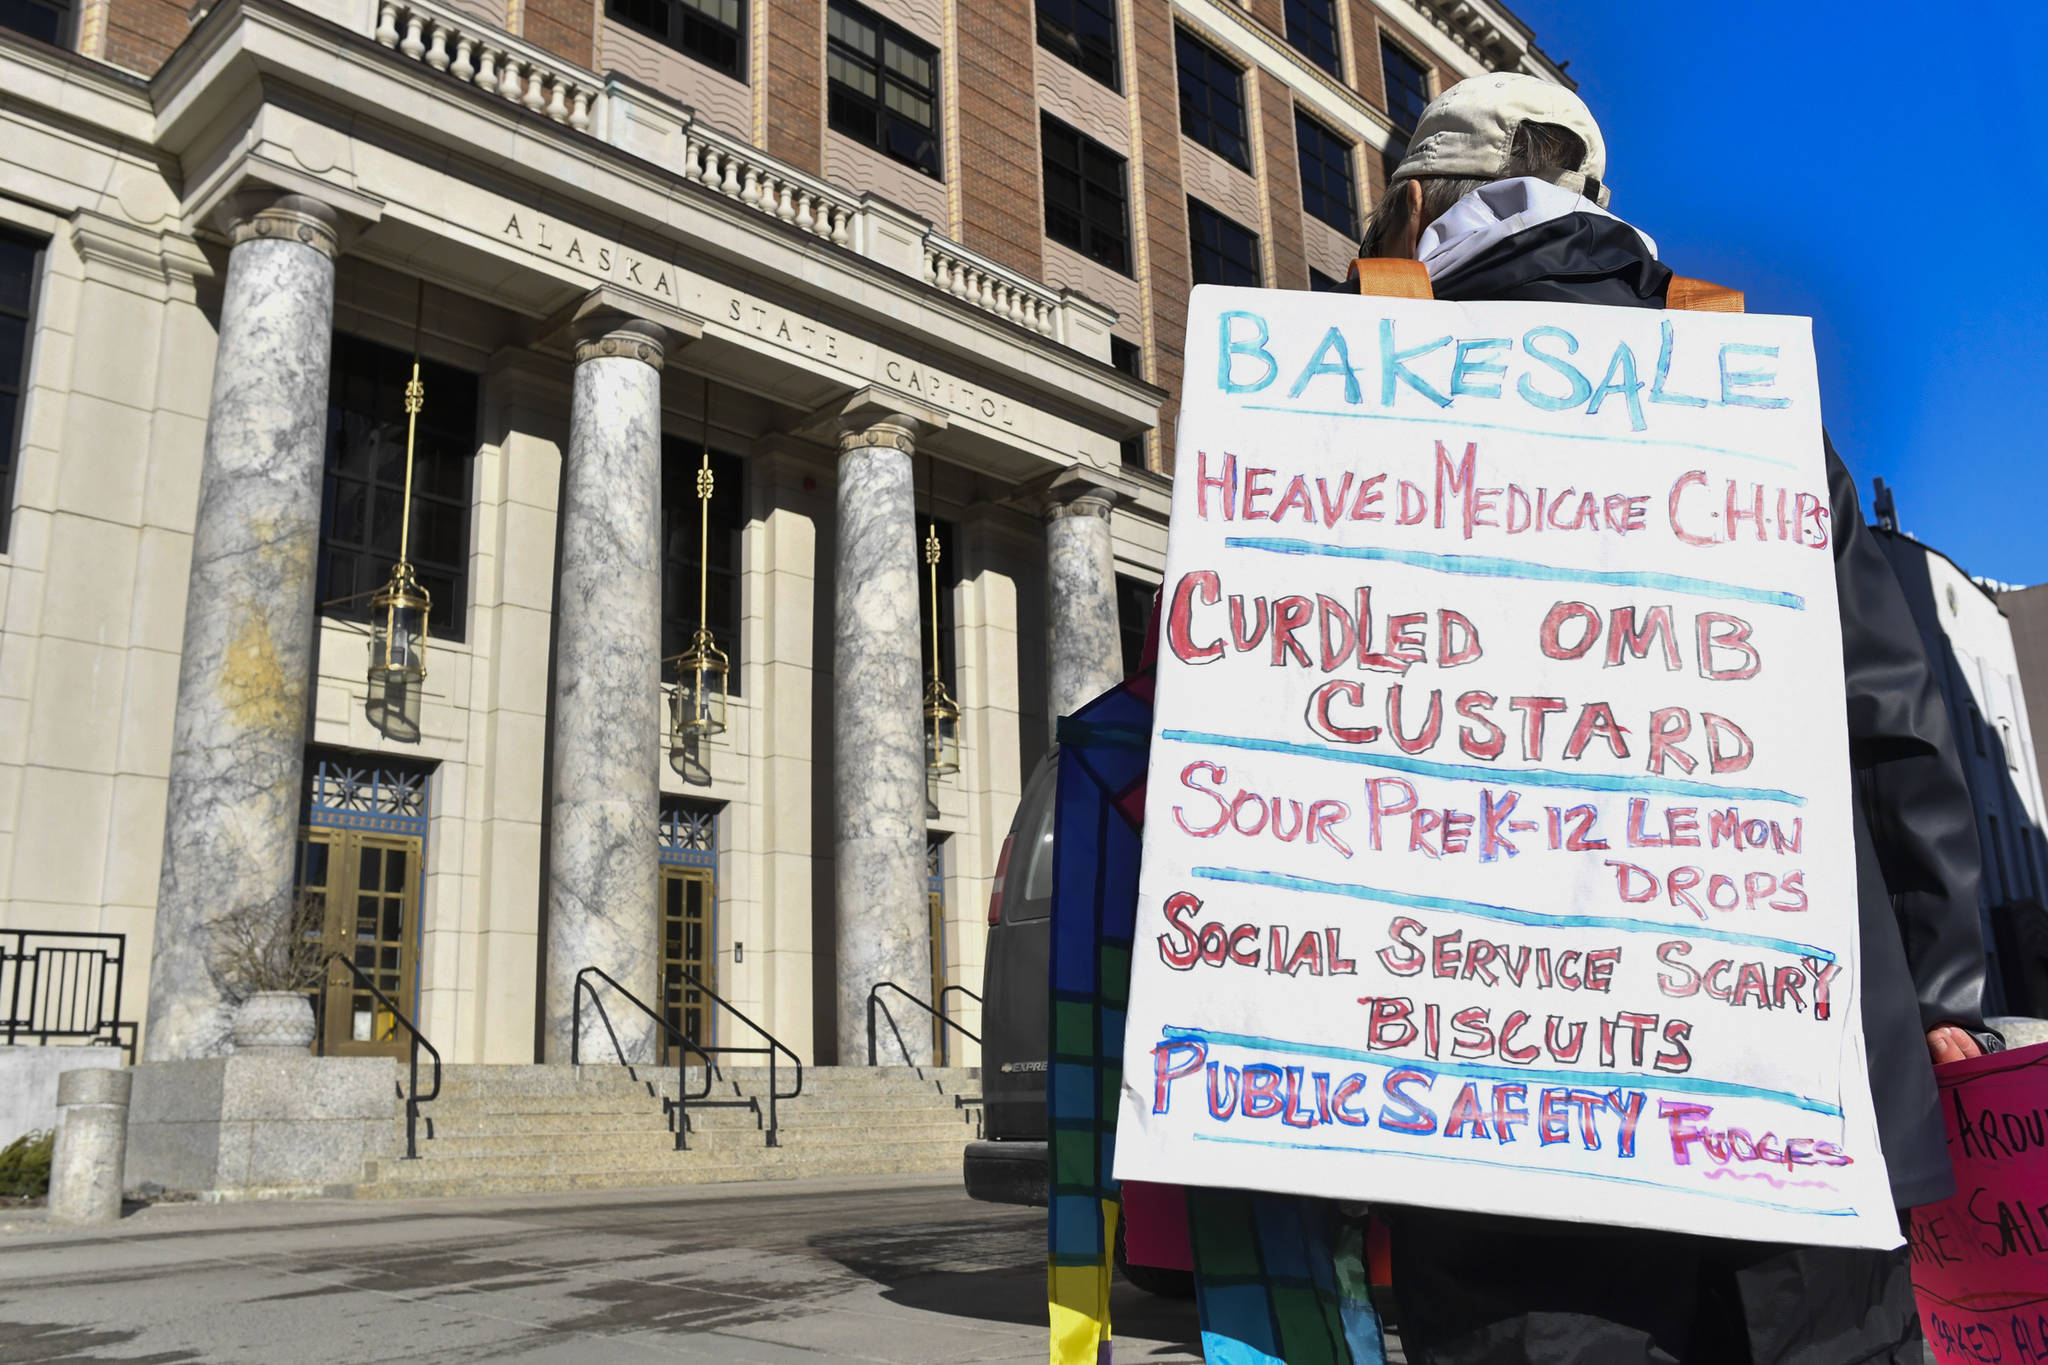 ALASKA · STATE · CAPITOL
BAKESALE
HEAVED MEDICARE C·H·I·P·S
CURDLED OMB
CUSTARD
SOUR PREK-12 LEMON
DROPS
SOCIAL SERVICE SCARY
BISCUITS
PUBLIC SAFETY FUDGES
EXPRE
AROU
AKE SALE
BAKED ALA